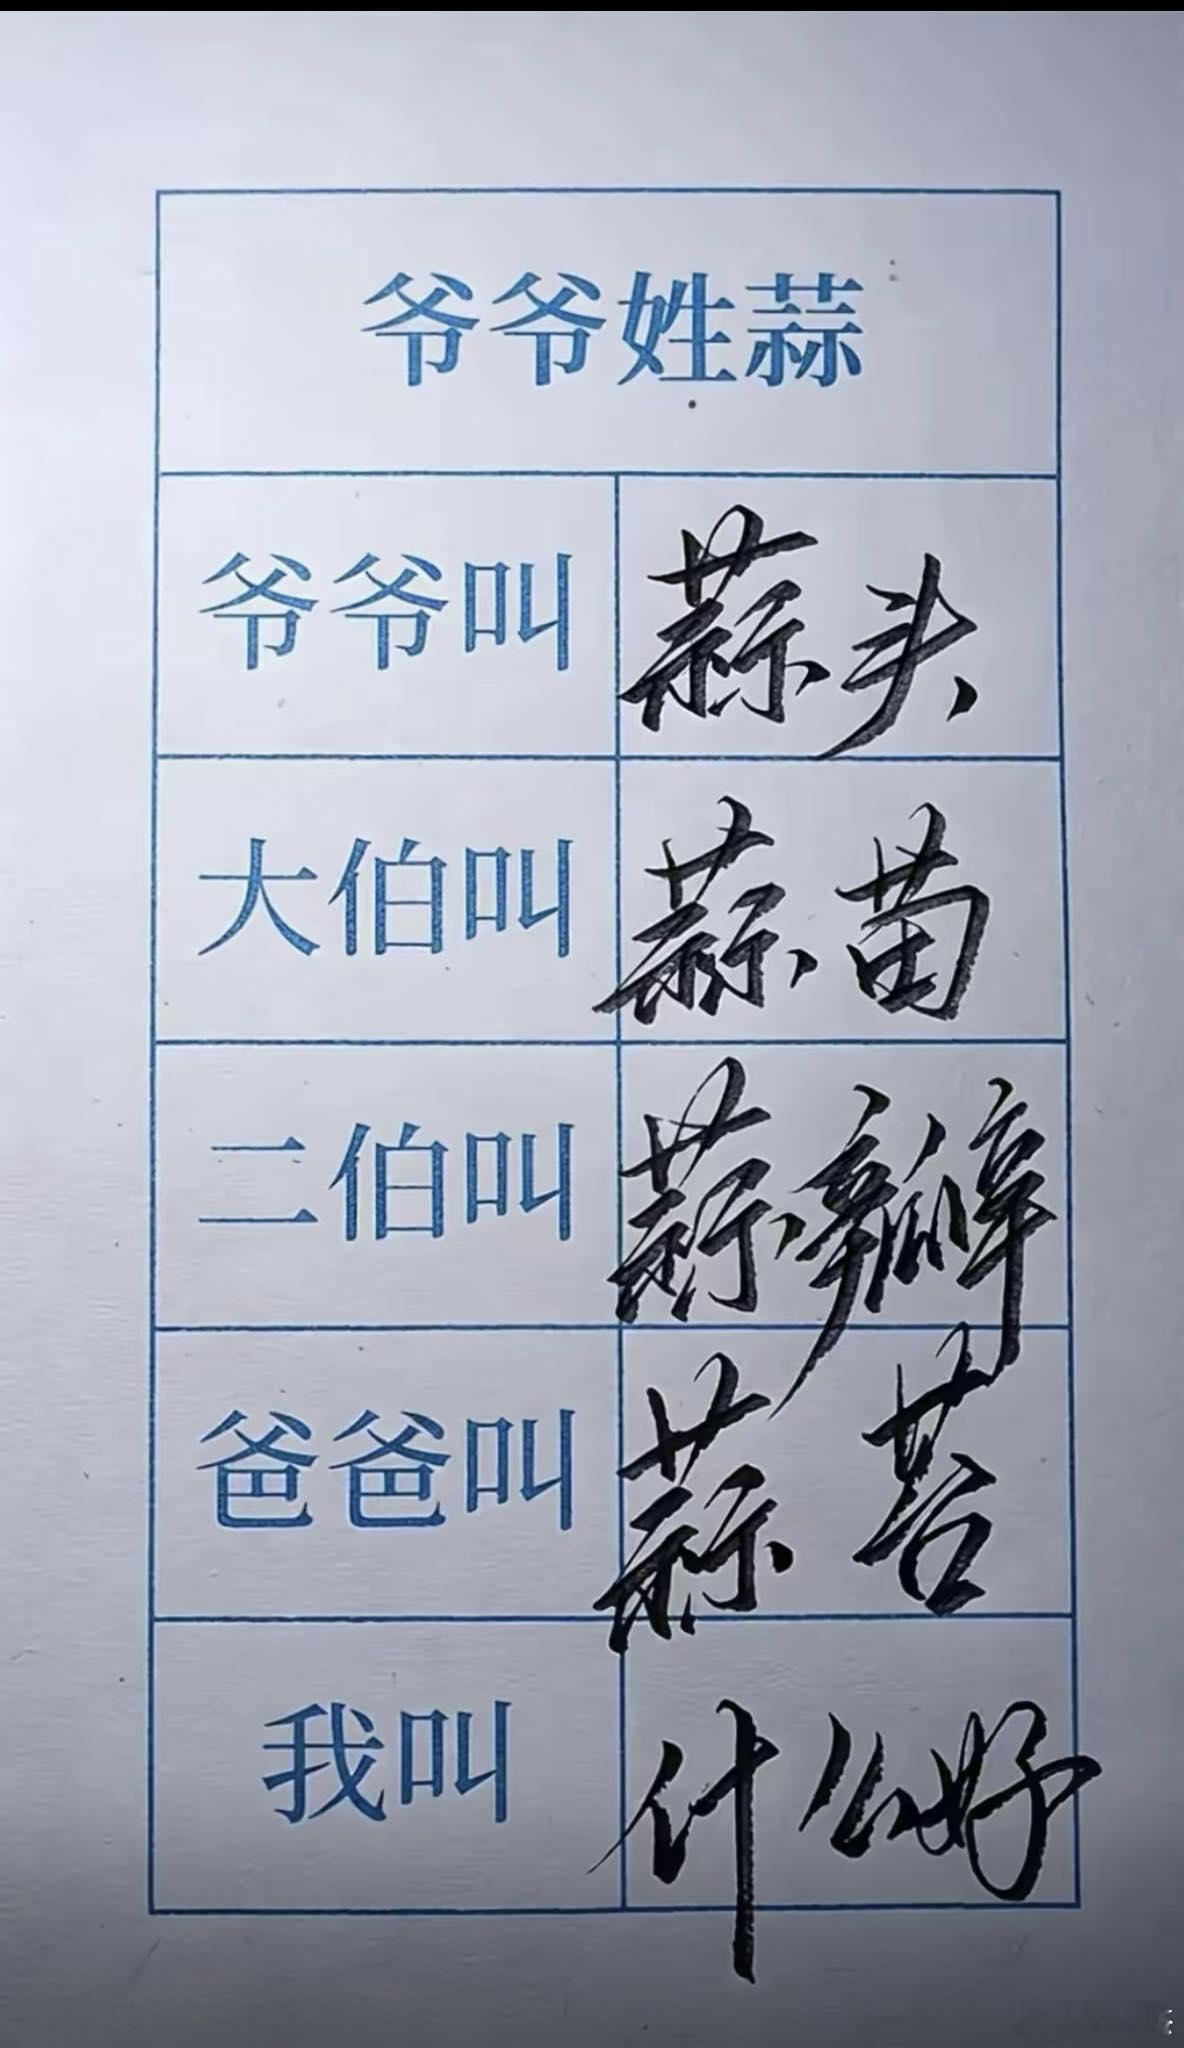 爷爷姓蒜
爷爷叫 蒜头
大伯叫 蒜苗
二伯叫 蒜瓣
爸爸叫 蒜苔
我叫 什么好